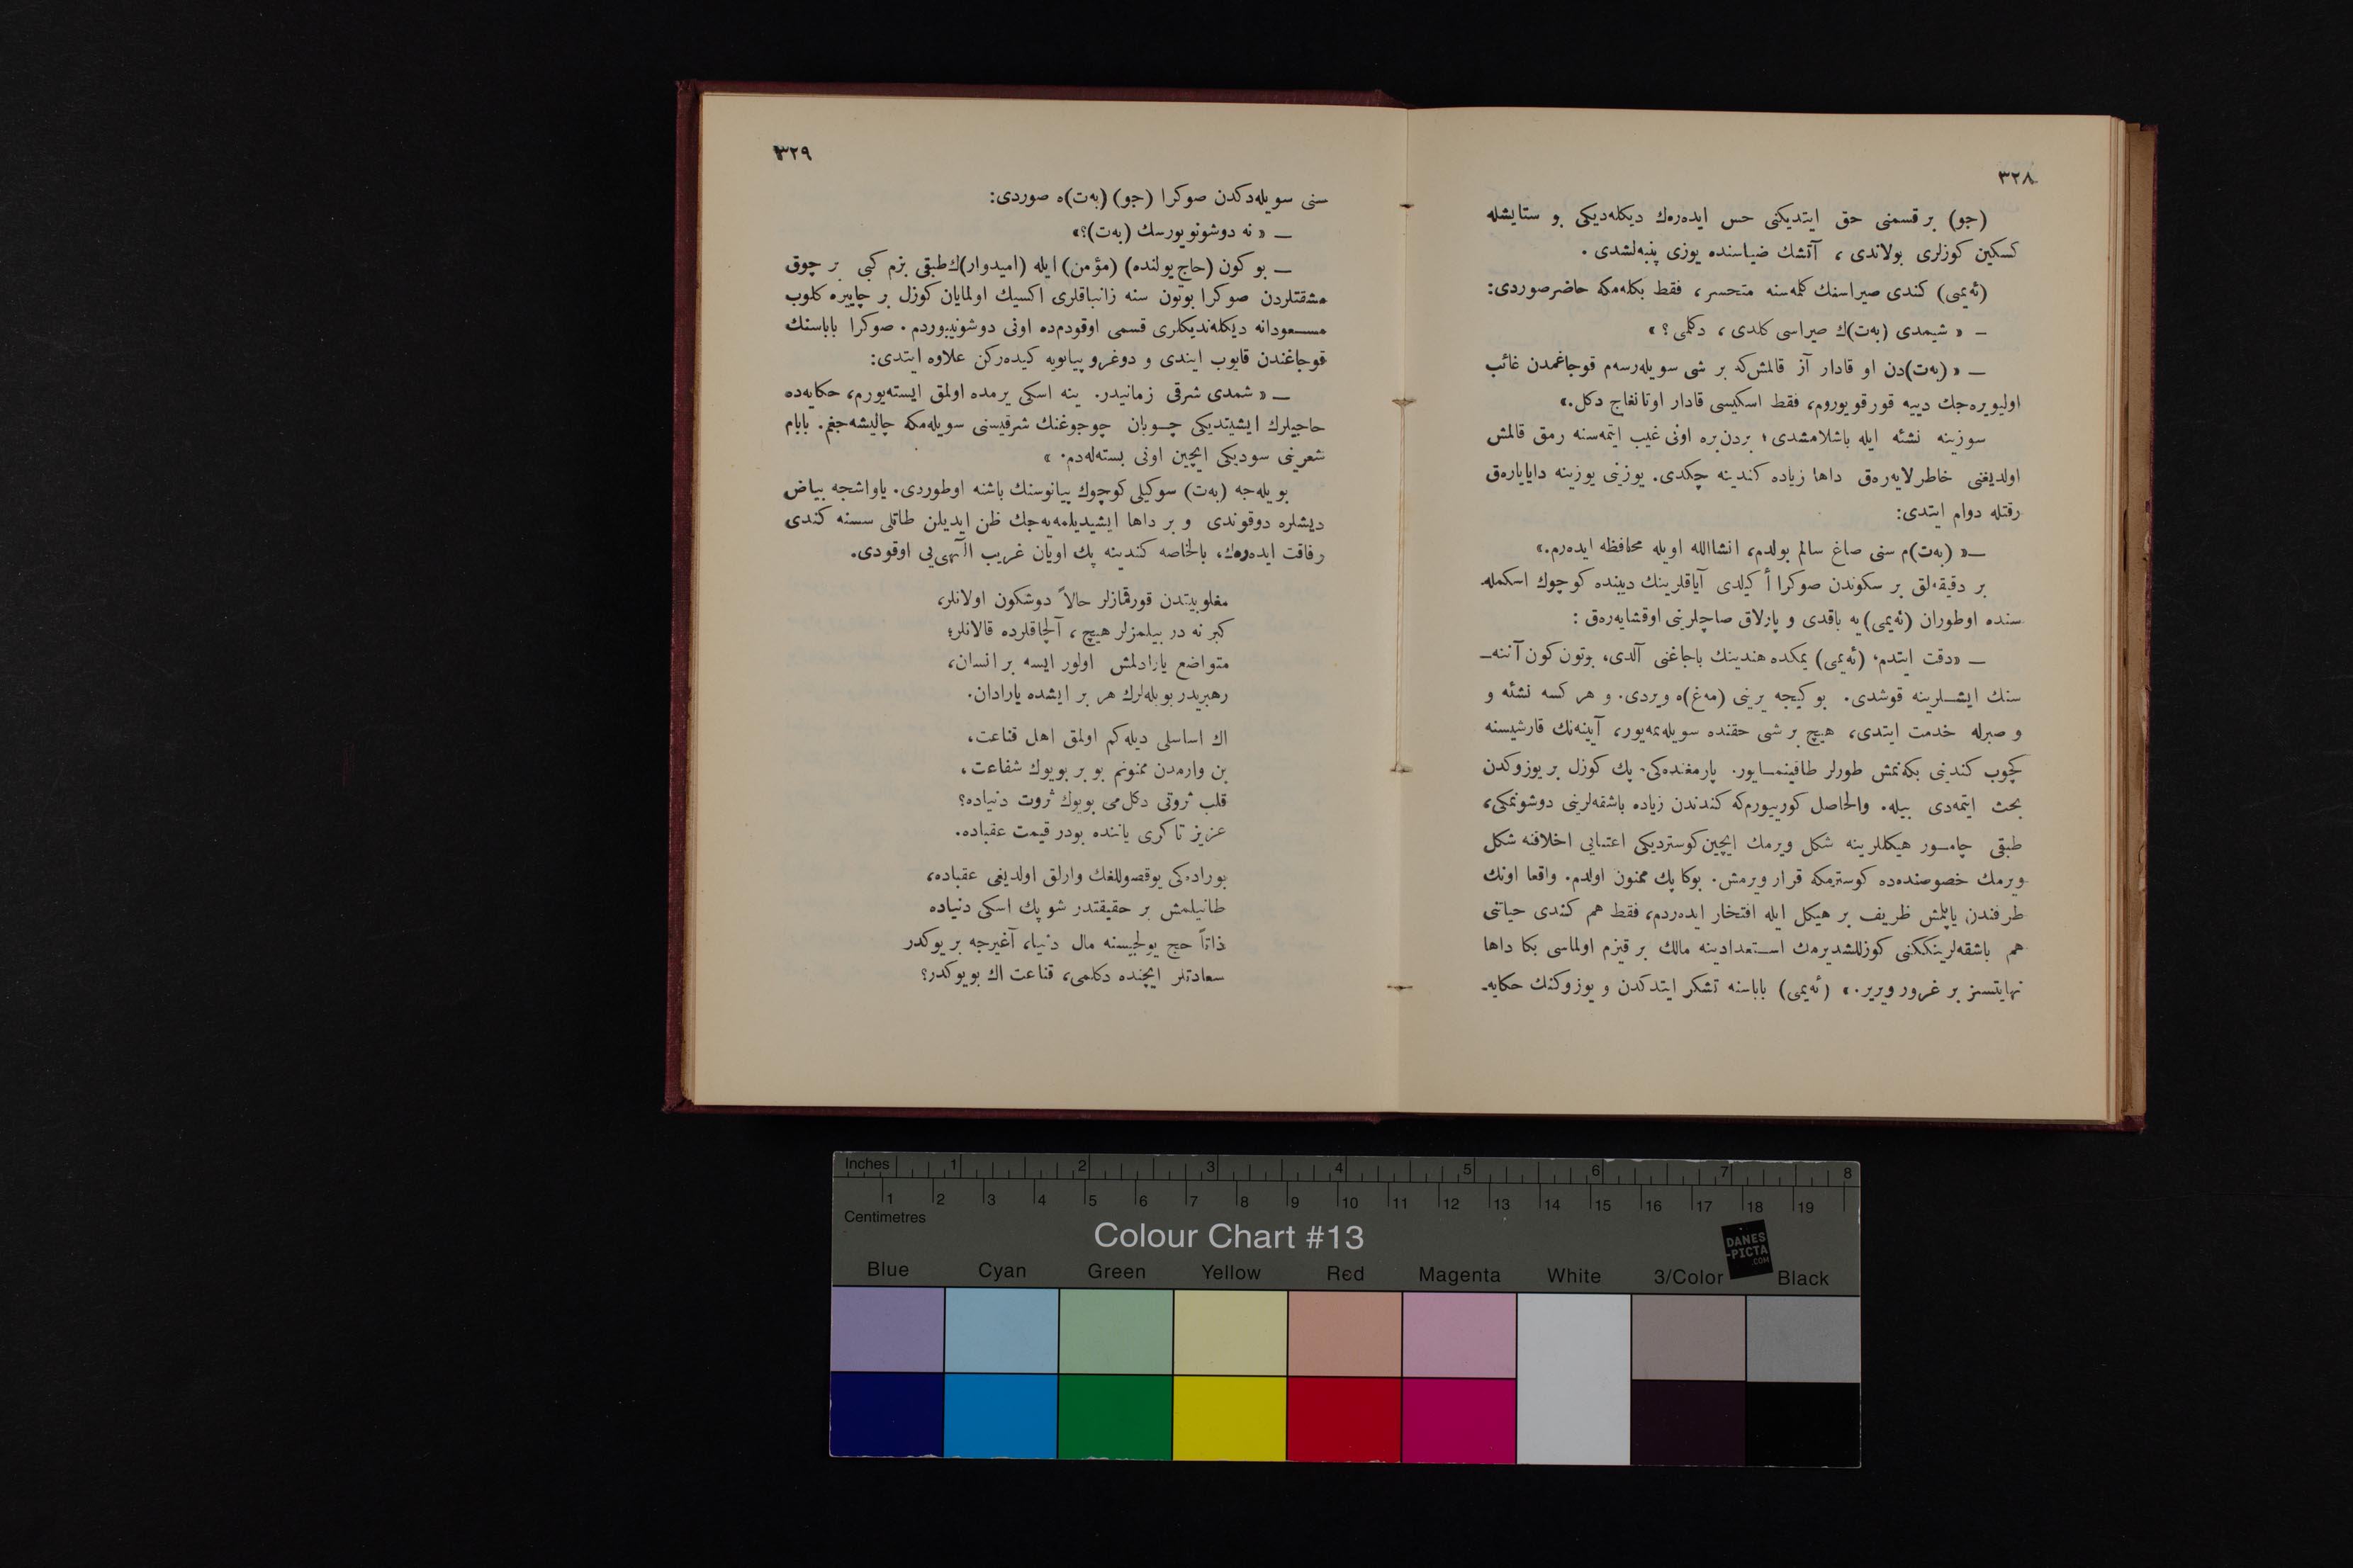 ٣٢٨
(جو) بر قسمنی حق ایتدیکنی حس ایده‌رەك دیکله‌دیکی بو ستایشله
کسکین کوزلری بولاندی ، آتشك ضیاسنده یوزی پنبه‌لشدی .
(ئه‌یمی) کندی صیراسنك کله‌سنه متحسر، فقط بکله‌مکه حاضر صوردی:
— « شیمدی (به‌ت)ك صیراسی کلدی ، دکلمی ؟ »
— « (به‌ت)دن او قادار آز قالمش‌که بر شی سویلەرسەم قوجاغمدن غائب
اولیویره‌جك دییه قورقویوروم، فقط اسکیسی قادار اوتانغاج دکل.»
سوزینه نشئه ایله باشلامشدی ؛ بردن‌بره اونی غیب ایتمه‌سنه رمق قالمش
اولدیغنی خاطرلایه‌رەق داها زیاده کندینه چکدی. یوزینی یوزینه دایایارەق
رقتله دوام ایتدی:
—« (به‌ت)م سنی صاغ سالم بولدم، انشاالله اویله محافظه ایده‌رم.»
بر دقیقه‌لق بر سکوندن صوکرا أکیلدی آیاقلرینك دیبنده کوچوك اسکمله‌ـ
سنده اوطوران (ئه‌یمی)یه باقدی و پارلاق صاچلرینی اوقشایه‌رەق :
— «دقت ایتدم، (ئه‌یمی) یمکده هندینك باجاغنی آلدی، بوتون کون آننه‌ـ
سنك ایشـلرینه قوشدی. بو کیجه یرینی (مه‌غ)ه ویردی. و هر کسه نشئه و
و صبرله خدمت ایتدی، هیچ بر شی حقنده سویله‌نمه‌یور، آیینه‌نك قارشیسنه
کچوب کندینی بکه‌نمش طورلر طاقینمـایور. پارمغنده‌کی پك کوزل بر یوزوکدن
بحث ایتمه‌دی بیله. والحاصل کورییورم‌که کندندن زیاده باشقه‌لرینی دوشونمکی،
طبقی چامـور هیکللرینه شکل ویرمك ایچین کوستردیکی اعتنایی اخلاقنه شکل
ویرمك خصوصنده‌ده کوسترمکه قرار ویرمش. بوکا پك ممنون اولدم. واقعا اونك
طرفندن یاپلمش ظریف بر هیکل ایله افتخار ایده‌ردم، فقط هم کندی حیاتنی
هم باشقه‌لرینککنی کوزللشدیرمك اسـتعدادینه مالك بر قیزم اولماسی بکا داها
نهایتسز بر غرور ویریر.» (ئه‌یمی) باباسنه تشکر ایتدکدن و یوزوکنك حکایه‌ـ
٣٢٩
سنی سویله‌دکدن صوکرا (جو) (به‌ت)ه صوردی:
— « نه دوشونویورسك (به‌ت)؟»
— بو کون (حاج یولنده) (مؤمن) ایله (امیدوار)ك طبقی بزم کبی بر چوق
مشقتلردن صوکرا بوتون سنه زانباقلری اکسیك اولمایان کوزل بر چاییره کلوب
مسـعودانه دیکله‌ندیکلری قسمی اوقودم‌ده اونی دوشونیوردم. صوکرا باباسنك
قوجاغندن قایوب ایندی و دوغرو پیانویه کیده‌رکن علاوه ایتدی:
— « شمدی شرقی زمانیدر. ینه اسکی یرمده اولمق ایسته‌یورم، حکایه‌ده
حاجیلرك ایشیتدیکی چـوبان چوجوغنك شرقیسنی سویله‌مکه چالیشه‌جغم. بابام
شعرینی سودیکی ایچین اونی بسته‌له‌دم. »
بویله‌جه (به‌ت) سوکیلی کوچوك پیانوسنك باشنه اوطوردی. یاواشجه بیاض
دیشلره دوقوندی و بر داها ایشیدیلمه‌یه‌جك ظن ایدیلن طاتلی سسنه کندی
رفاقت ایده‌رەك، بالخاصه کندینه پك اویان غریب الٓهی‌یی اوقودی.
مغلوبیتدن قورقمازلر حالاً دوشکون اولانلر،
کبر نه در بیلمزلر هیچ ، آلچاقلرده قالانلر؛
متواضع یارادلمش اولور ایسه بر انسان،
رهبریدر بویله‌لرك هر بر ایشده یارادان.
اك اساسلی دیله‌کم اولمق اهل قناعت،
بن وارمدن ممنونم بو بر بویوك شفاعت،
قلب ثروتی دکل‌می بویوك ثروت دنیاده؟
عزیز تاکری یاننده بودر قیمت عقباده.
بوراده‌کی یوقصوللغك وارلق اولدیغی عقباده،
طانیلمش بر حقیقتدر شو پك اسکی دنیاده
ذاتاً حج یولجیسنه مال دنیا، آغیرجه بر یوکدر
سعادتلر ایچنده دکلمی، قناعت اك بویوکدر؟
Inches 1 2 3 4 5 6 7 8
1 2 3 4 5 6 7 8 9 10 11 12 13 14 15 16 17 18 19
Centimetres
Colour Chart #13
DANES
-PICTA
.COM
Blue Cyan Green Yellow Red Magenta White 3/Color Black